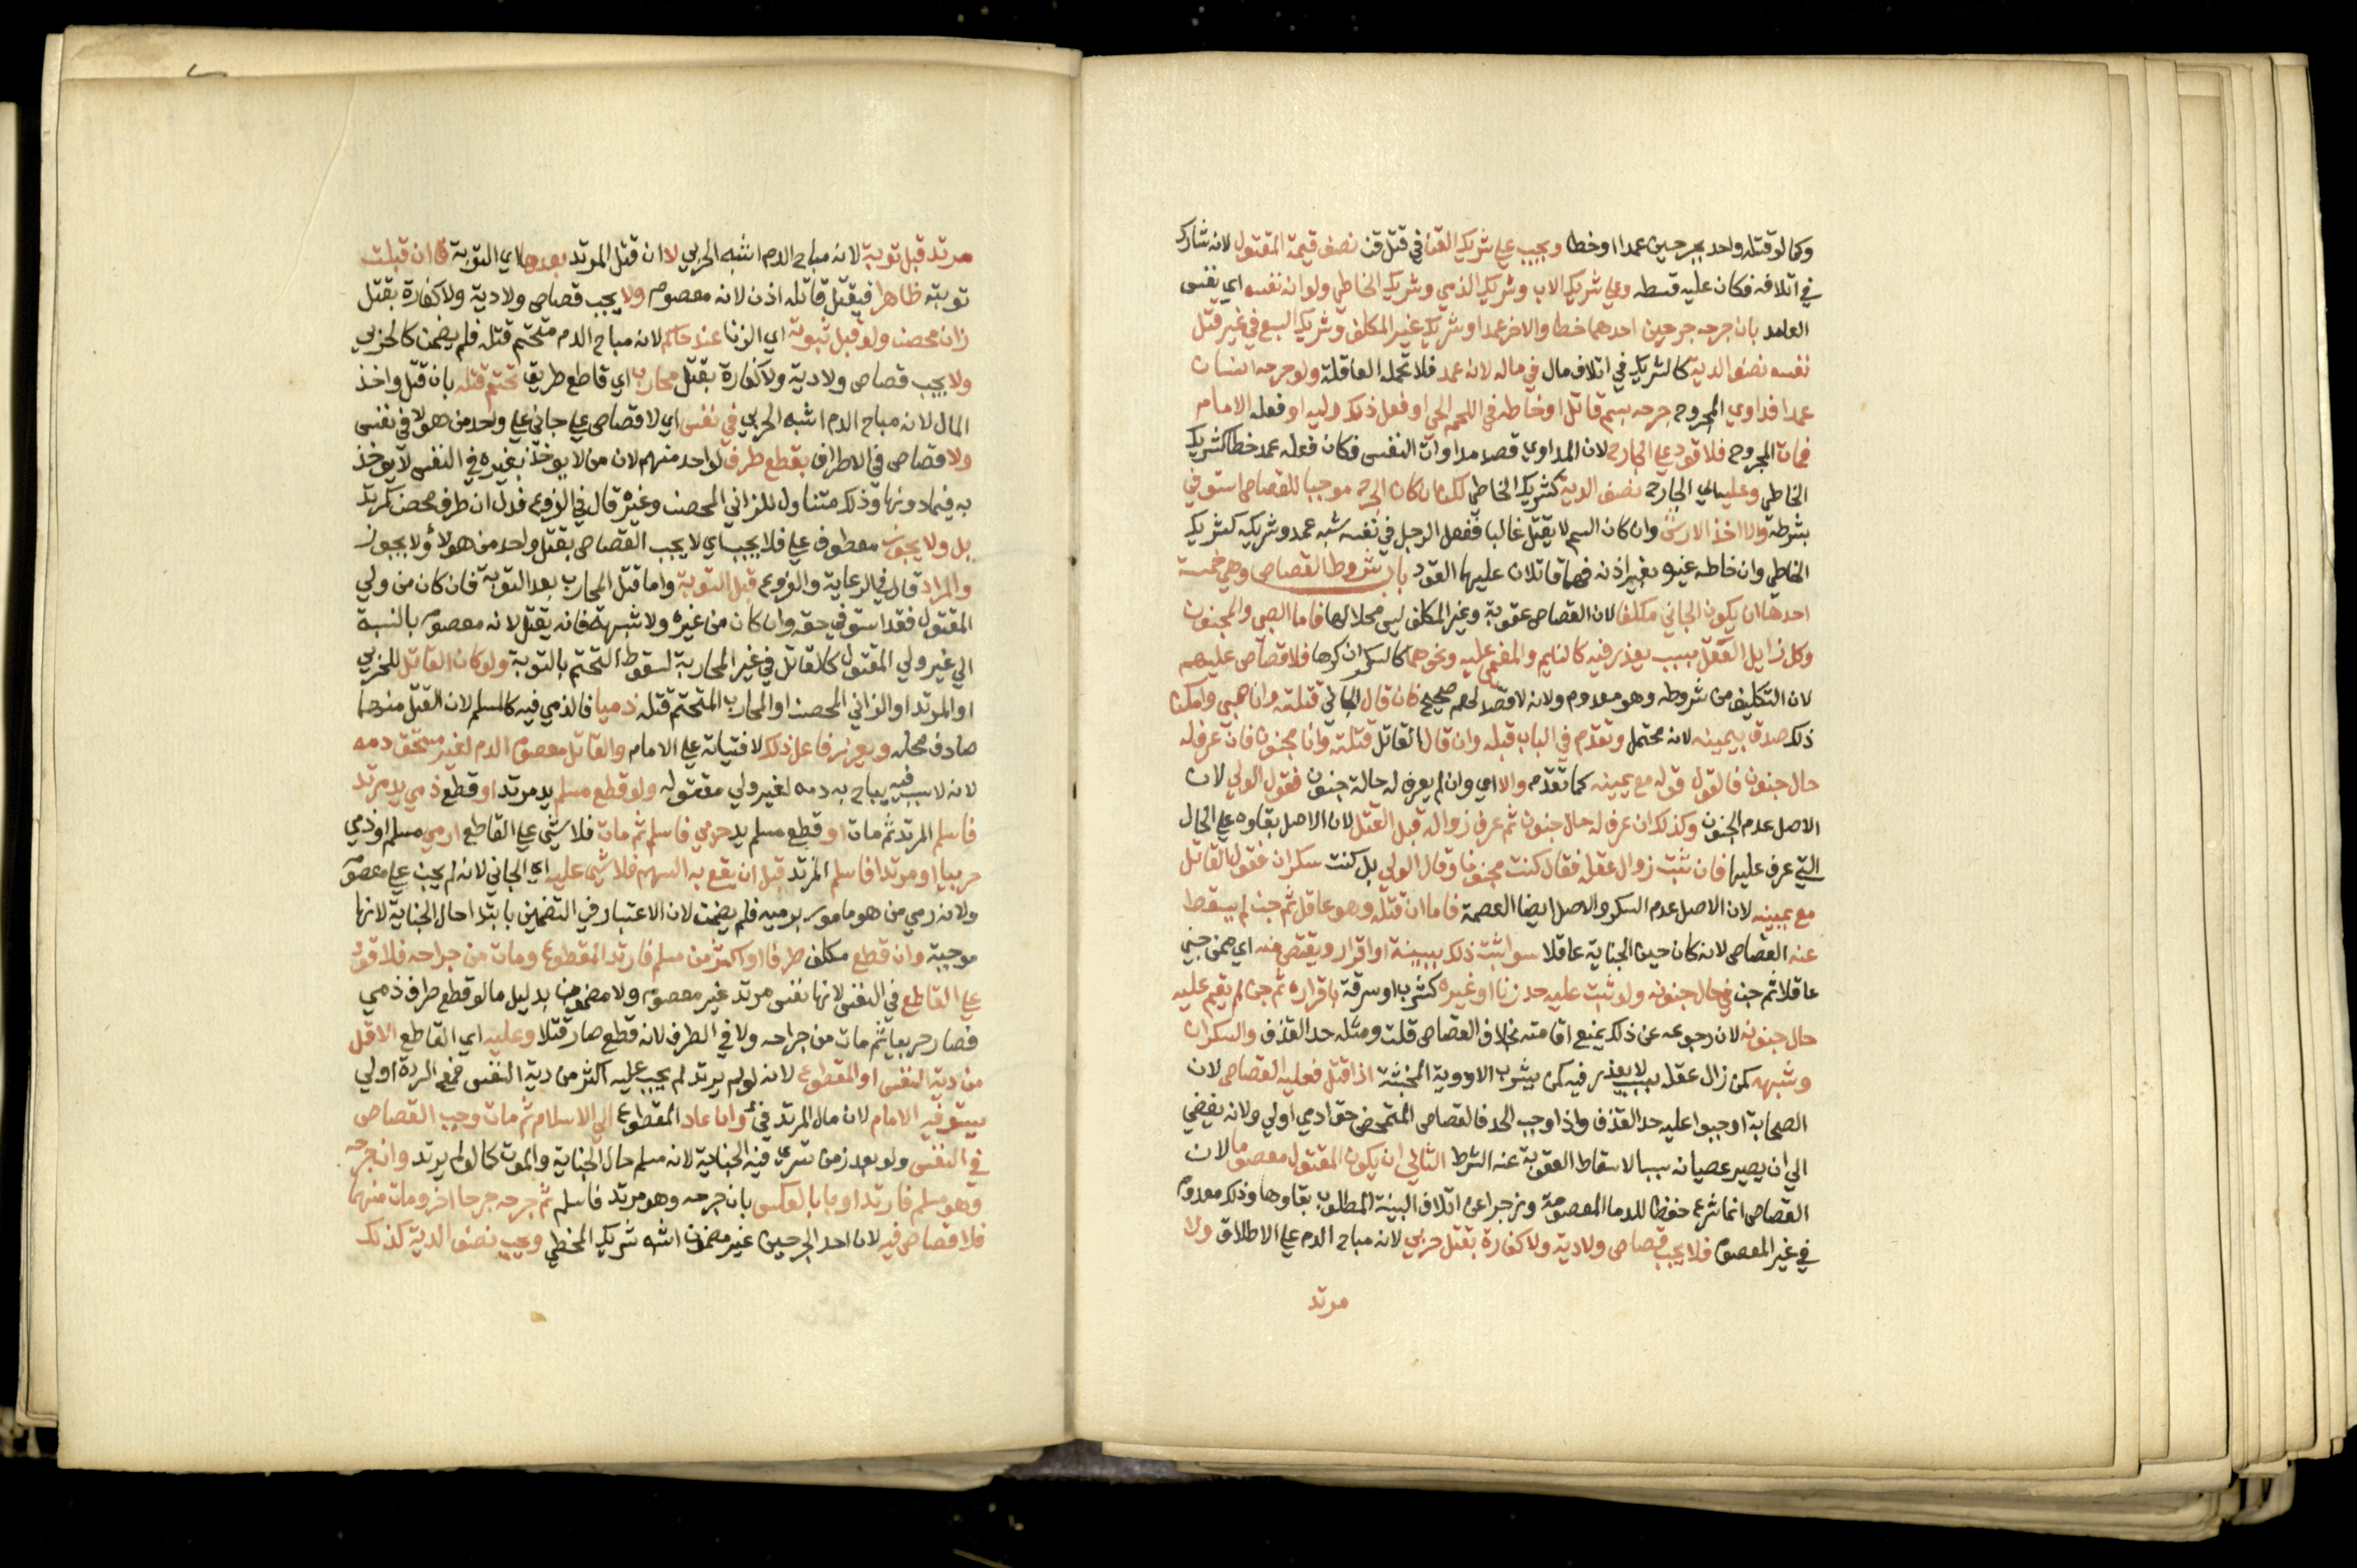 وكما لو قتله واحد بجرحين عمدا او خطا ويجب علي شريك القن في قتل قن نصف قيمة المقتول لانه شارك
في اتلافه فكان عليه قسطه وعلي شريك الاب وشريك الذمي وشريك الخاطي ولو انه نفسه اي نفس
العامد بان جرحه جرحين احدهما خطا والاخر عمدا وشريك غير المكلف وشريك السبع في غير قتل
نفسه نصف الدية كالشريك في اتلاف مال في ماله لانه عمد فلا تحمله العاقلة ولو جرحه انسان
عمدا فداوي المجروح جرحه بسم قاتل او خاطه في اللحم الحي او فعل ذلك وليه او فعله الامام
فمات المجروح فلا قود علي الجارح لان المداوي قصد مداوات النفس فكان فعله عمد خطا كشريك
الخاطي وعليه اي الجارح نصف الدية كشريك الخاطي لكن ان كان الجرح موجبا للقصاص استوفي
بشرطه والا اخذ الارش وان كان السم لا يقتل غالبا ففعل الرجل في نفسه شبه عمد وشريكه كشريك
الخاطي وان خاطه غيره بغير اذنه فهما قاتلان عليهما القود باب شروط القصاص وهي خمسة
احدها ان يكون الجاني مكلفا لان القصاص عقوبة وغير المكلف ليس محلا لها فاما الصبي والمجنون
وكل زايل العقل بسبب يعذر فيه كالنايم والمغمي عليه ونحوهما كالسكران كرها فلا قصاص عليهم
لان التكليف من شروطه وهو معدوم ولانه لا قصد لهم صحيح فان قال الجاني قتلته وانا صبي وامكن
ذلك صدق بيمينه لانه محتمل وتقدم في الباب قبله وان قال القاتل قتلته وانا مجنون فان عرف له
حال جنون فالقول قوله مع يمينه كما تقدم والا اي وان لم يعرف له حالة جنون فقول الولي لان
الاصل عدم الجنون وكذلك ان عرف له حال جنون ثم عرف زواله قبل القتل لان الاصل بقاوه علي الحال
التي عرف عليها فان ثبت زوال عقله فقال كنت مجنونا وقال الولي بل كنت سكران فقول القاتل
مع يمينه لان الاصل عدم السكر والاصل ايضا العصمة فاما ان قتله وهو عاقل ثم جن لم يسقط
عنه القصاص لانه كان حين الجناية عاقلا سوا ثبت ذلك ببينة او اقرار ويقتص منه اي ممن جني
عاقلا ثم جن في حال جنونه ولو ثبت عليه حد زنا او غيره كشرب او سرقة باقراره ثم جن لم يقم عليه
حال جنونه لان رجوعه عن ذلك يمنع اقامته بخلاف القصاص قلت ومثله حد القذف والسكران
وشبهه كمن زال عقله بسبب لا يعذر فيه كمن يشرب الادوية المخبثة اذا قتل فعليه القصاص لان
الصحابة اوجبوا عليه حد القذف واذا وجب الحد فالقصاص المتمحض حق ادمي اولي ولانه يفضي
الي ان يصير عصيانه سببا لاسقاط العقوبة عنه الشرط الثاني ان يكون المقتول معصوما لان
القصاص انما شرع حفظا للدما المعصومة وزجرا عن اتلاف البنية المطلوب بقاوها وذلك معدوم
في غير المعصوم فلا يجب قصاص ولا دية ولا كفارة بقتل حربي لانه مباح الدم علي الاطلاق ولا
مرتد
مرتد قبل توبة لانه مباح الدم اشبه الحربي لا ان قتل المرتد بعدها اي التوبة فان قبلت
توبته ظاهرا فيقتل قاتله اذن لانه معصوم ولا يجب قصاص ولا دية ولا كفارة بقتل
زان محصن ولو قبل ثبوته اي الزنا عند حاكم لانه مباح الدم متحتم قتله فلم يضمن كالحربي
ولا يجب قصاص ولا دية ولا كفارة بقتل محارب اي قاطع طريق تحتم قتله بان قتل واخذ
المال لانه مباح الدم اشبه الحربي في نفس اي لا قصاص علي جاني علي واحد من هولا في نفس
ولا قصاص في الاطراف بقطع طرف لواحد منهم لان من لا يوخذ بغيره في النفس لا يوخذ
به فيما دونها وذلك متناول للزاني المحصن وغيره قال في الفروع فدل ان طرف محصن كمرتد
بل ولا يجوز معطوف علي فلا يجب اي لا يجب القصاص بقتل واحد من هولا ولا يجوز
والمراد قال في الرعاية والفروع قبل التوبة واما قتل المحارب بعد التوبة فان كان من ولي
المقتول فقد استوفي حقه وان كان من غيره ولا شبهة فانه يقتل لانه معصوم بالنسبة
الي غير ولي المقتول كالقاتل في غير المحاربة لسقوط التحتم بالتوبة ولو كان القاتل للحربي
او المرتد او الزاني المحصن او المحارب المتحتم قتله ذميا فالذمي فيه كالمسلم لان القتل منهما
صادف محله ويعزر فاعل ذلك لافتياته علي الامام والقاتل معصوم الدم لغير مستحق دمه
لانه لا سبب فيه يباح به دمه لغير ولي مقتوله ولو قطع مسلم يد مرتد او قطع ذمي يد مرتد
فاسلم المرتد ثم مات او قطع مسلم يد حربي فاسلم ثم مات فلا شي علي القاطع او رمي مسلم او ذمي
حربيا او مرتدا فاسلم المرتد قبل ان يقع به السهم فلا شي عليه اي الجاني لانه لم يجن علي معصوم
ولانه رمي من هو مامور برميه فلم يضمن لان الاعتبار في التضمين بابتدا حال الجناية لانها
موجبة وان قطع مكلف طرفا او اكثر من مسلم فارتد المقطوع ومات من جراحه فلا قود
علي القاطع في النفس لانها نفس مرتد غير معصوم ولا مضمون بدليل ما لو قطع طرف ذمي
فصار حربيا ثم مات من جراحه ولا في الطرف لانه قطع صار قتلا وعليه اي القاطع الاقل
من دية النفس او المقطوع لانه لو لم يرتد لم يجب عليه اكثر من دية النفس فمع الردة اولي
يستوفيه الامام لان مال المرتد في وان عاد المقطوع الي الاسلام ثم مات وجب القصاص
في النفس ولو بعد زمن تسري فيه الجناية لانه مسلم حال الجناية والموت كما لو لم يرتد وان جرحه
وهو مسلم فارتد او بالعكس بان جرحه وهو مرتد فاسلم ثم جرحه جرحا اخر ومات منهما
فلا قصاص فيه لان احد الجرحين غير مضمون اشبه شريك المخطي ويجب نصف الدية كذلك